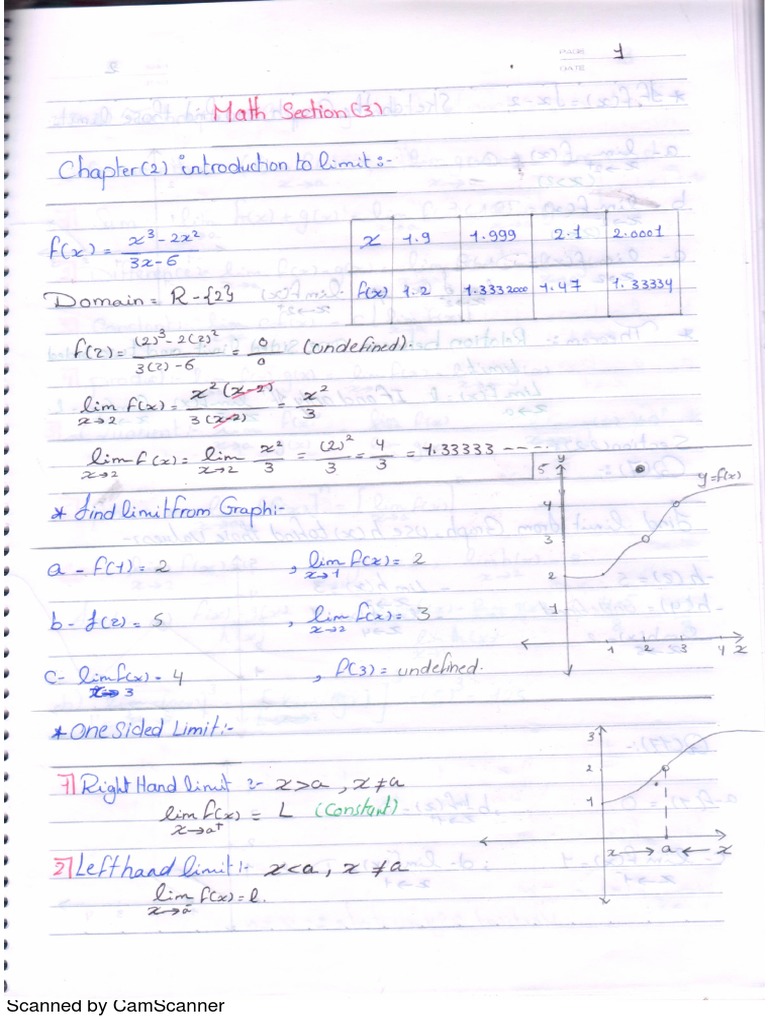 PAGE 1
DATE
Math Section (3)
Chapter (2) introduction to limit :-
f(x) = x³ - 2x² / 3x - 6
x 1.9 1.999 2.1 2.0001
f(x) 1.2 1.3332000 1.47 1.33334
Domain = R - {2}
f(2) = (2)³ - 2(2)² / 3(2) - 6 = 0/0 (undefined).
lim x→2 f(x) = x²(x-2) / 3(x-2) = x²/3
lim x→2 f(x) = lim x→2 x²/3 = (2)²/3 = 4/3 = 1.33333 ---
* find limit from Graph:-
y
5
4
3
2
1
1 2 3 4 x
y=f(x)
a - f(1) = 2 , lim x→1 f(x) = 2
b - f(2) = 5 , lim x→2 f(x) = 3
c - lim x→3 f(x) = 4 , f(3) = undefined.
* One Sided Limit:-
3
2
1
x → a ← x
1] Right Hand limit :- x>a , x≠a
lim x→a⁺ f(x) = L (constant)
2] Left hand limit :- x<a , x≠a
lim x→a⁻ f(x) = l.
Scanned by CamScanner